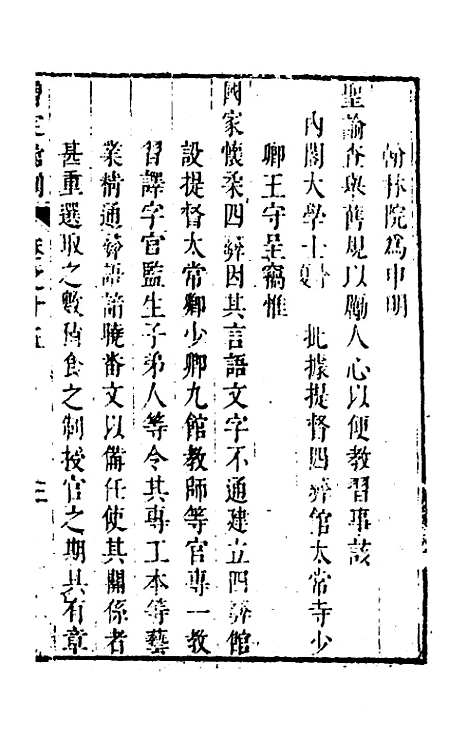 翰林院爲申明
聖諭查與舊規以勵人心以便教習事該
內閣大學士 批據提督四彝館太常寺少
卿王守呈竊惟
國家懷柔四彝因其言語文字不通建立四彝館
設提督太常卿少卿九館教師等官專一教
習譯字官監生子弟人等令其專工本等藝
業精通彝語諳曉畨文以備任使其關係者
甚重選取之數 食之制授官之期具有章
增定館則 卷之十五 三